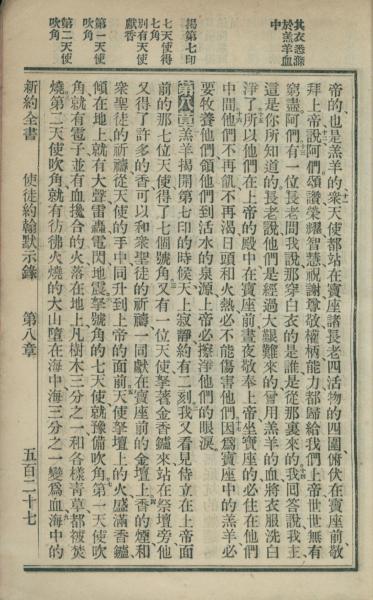 其衣悉滌
於羔羊血
中
揭第七印
七天使得
七角
別有天使
獻香
第一天使
吹角
第二天使
吹角
帝的、也是羔羊的、衆天使都站在寶座諸長老四活物的四圍、俯伏在寶座前敬
拜上帝、說、阿們、頌讚榮耀智慧祝謝尊敬權柄能力、都歸給我們上帝、世世無有
窮盡、阿們、有一位長老問我說、那穿白衣的是誰、是從那裏來的、我回答說、我主、
這是你所知道的、長老說、他們是經過大艱難來的、曾用羔羊的血將衣服洗白
淨了、所以他們在上帝的殿中、在寶座前、晝夜敬奉上帝、坐寶座的必住在他們
中間、他們不再飢、不再渴、日頭和火熱必不能傷害他們、因爲寶座中的羔羊必
要牧養他們、領他們到活水的泉源、上帝必擦淨他們的眼淚、
第八章羔羊揭開第七印的時候、天上寂靜約有二刻、我又看見侍立在上帝面
前的那七位天使、得了七個號角、又有一位天使拏著金香鑪、來站在祭壇旁、他
又得了許多的香、可以和衆聖徒的祈禱、一同獻在寶座前的金壇上、香的煙和
衆聖徒的祈禱、從天使的手中同升到上帝的面前、天使拏壇上的火盛滿香鑪、
傾在地上、就有大聲雷轟電閃地震、拏號角的七天使就豫備吹角、第一天使吹
角、就有雹子、並有血攙合的火落在地上、凡樹木三分之一和各樣靑草、都被焚
燒、第二天使吹角、就有彷彿火燒的大山墮在海中、海三分之一變爲血、海中的
新約全書　使徒約翰默示錄　第八章　五百二十七